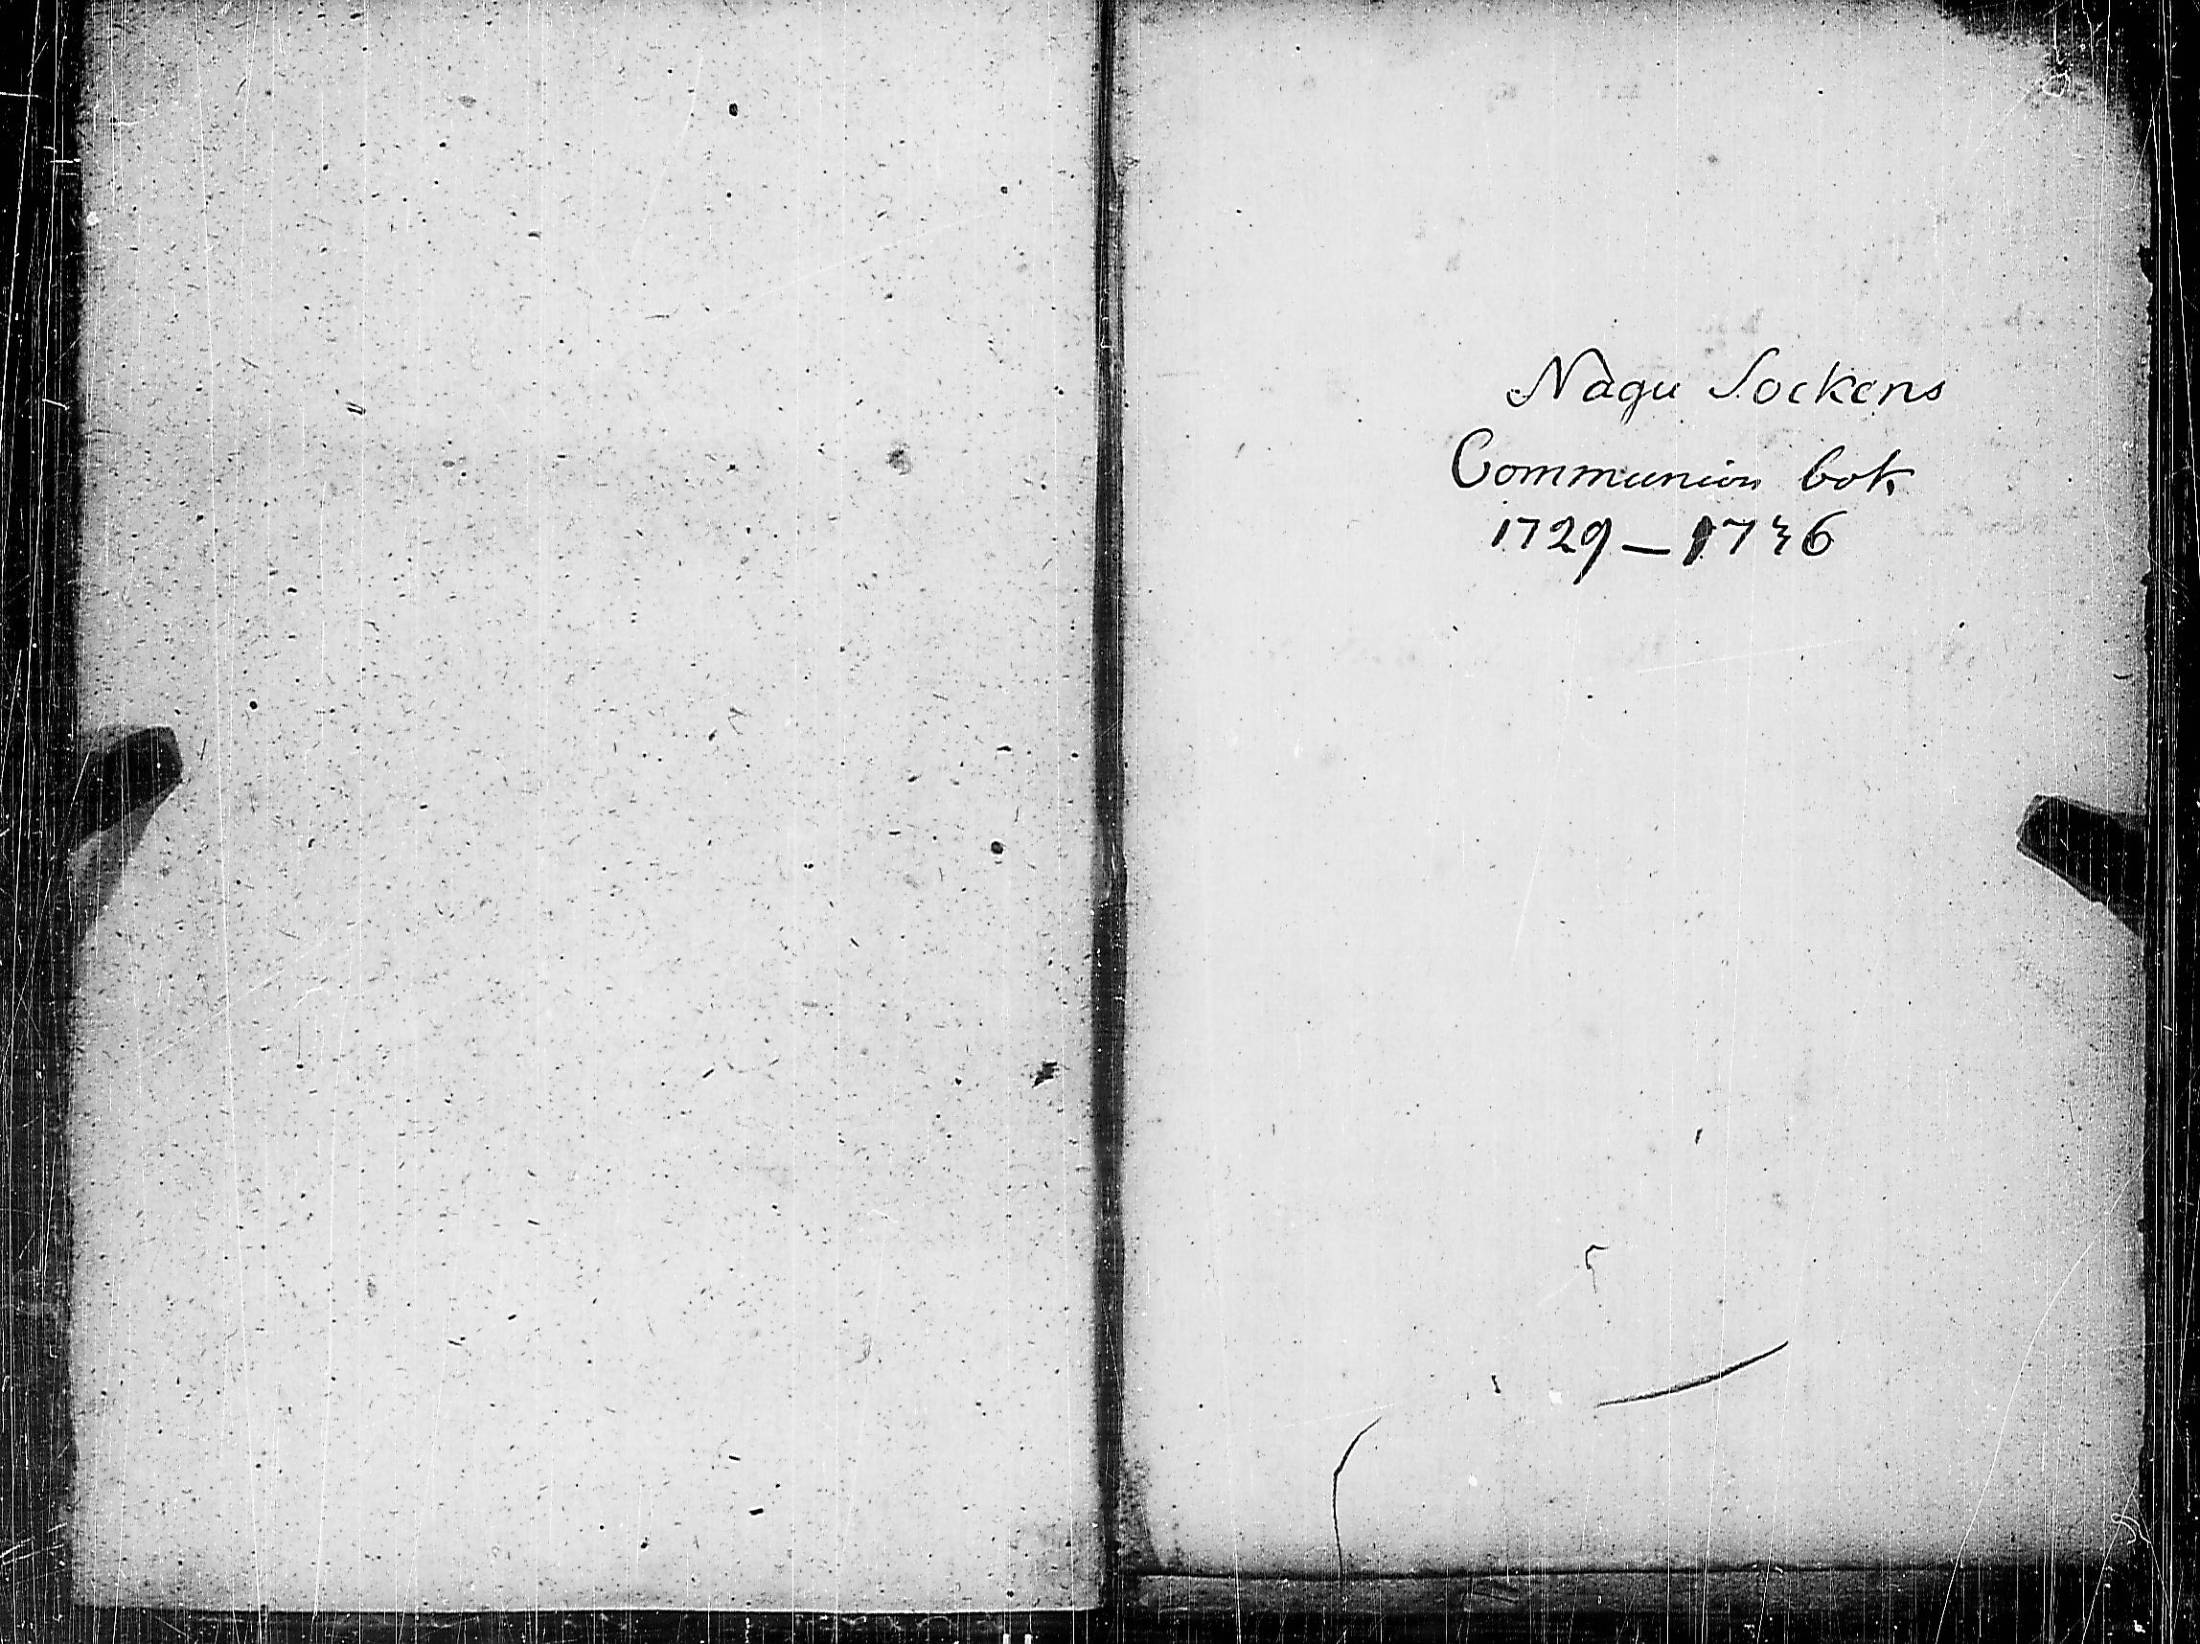 Nagu Sockens
Communion bok
1729 – 1736